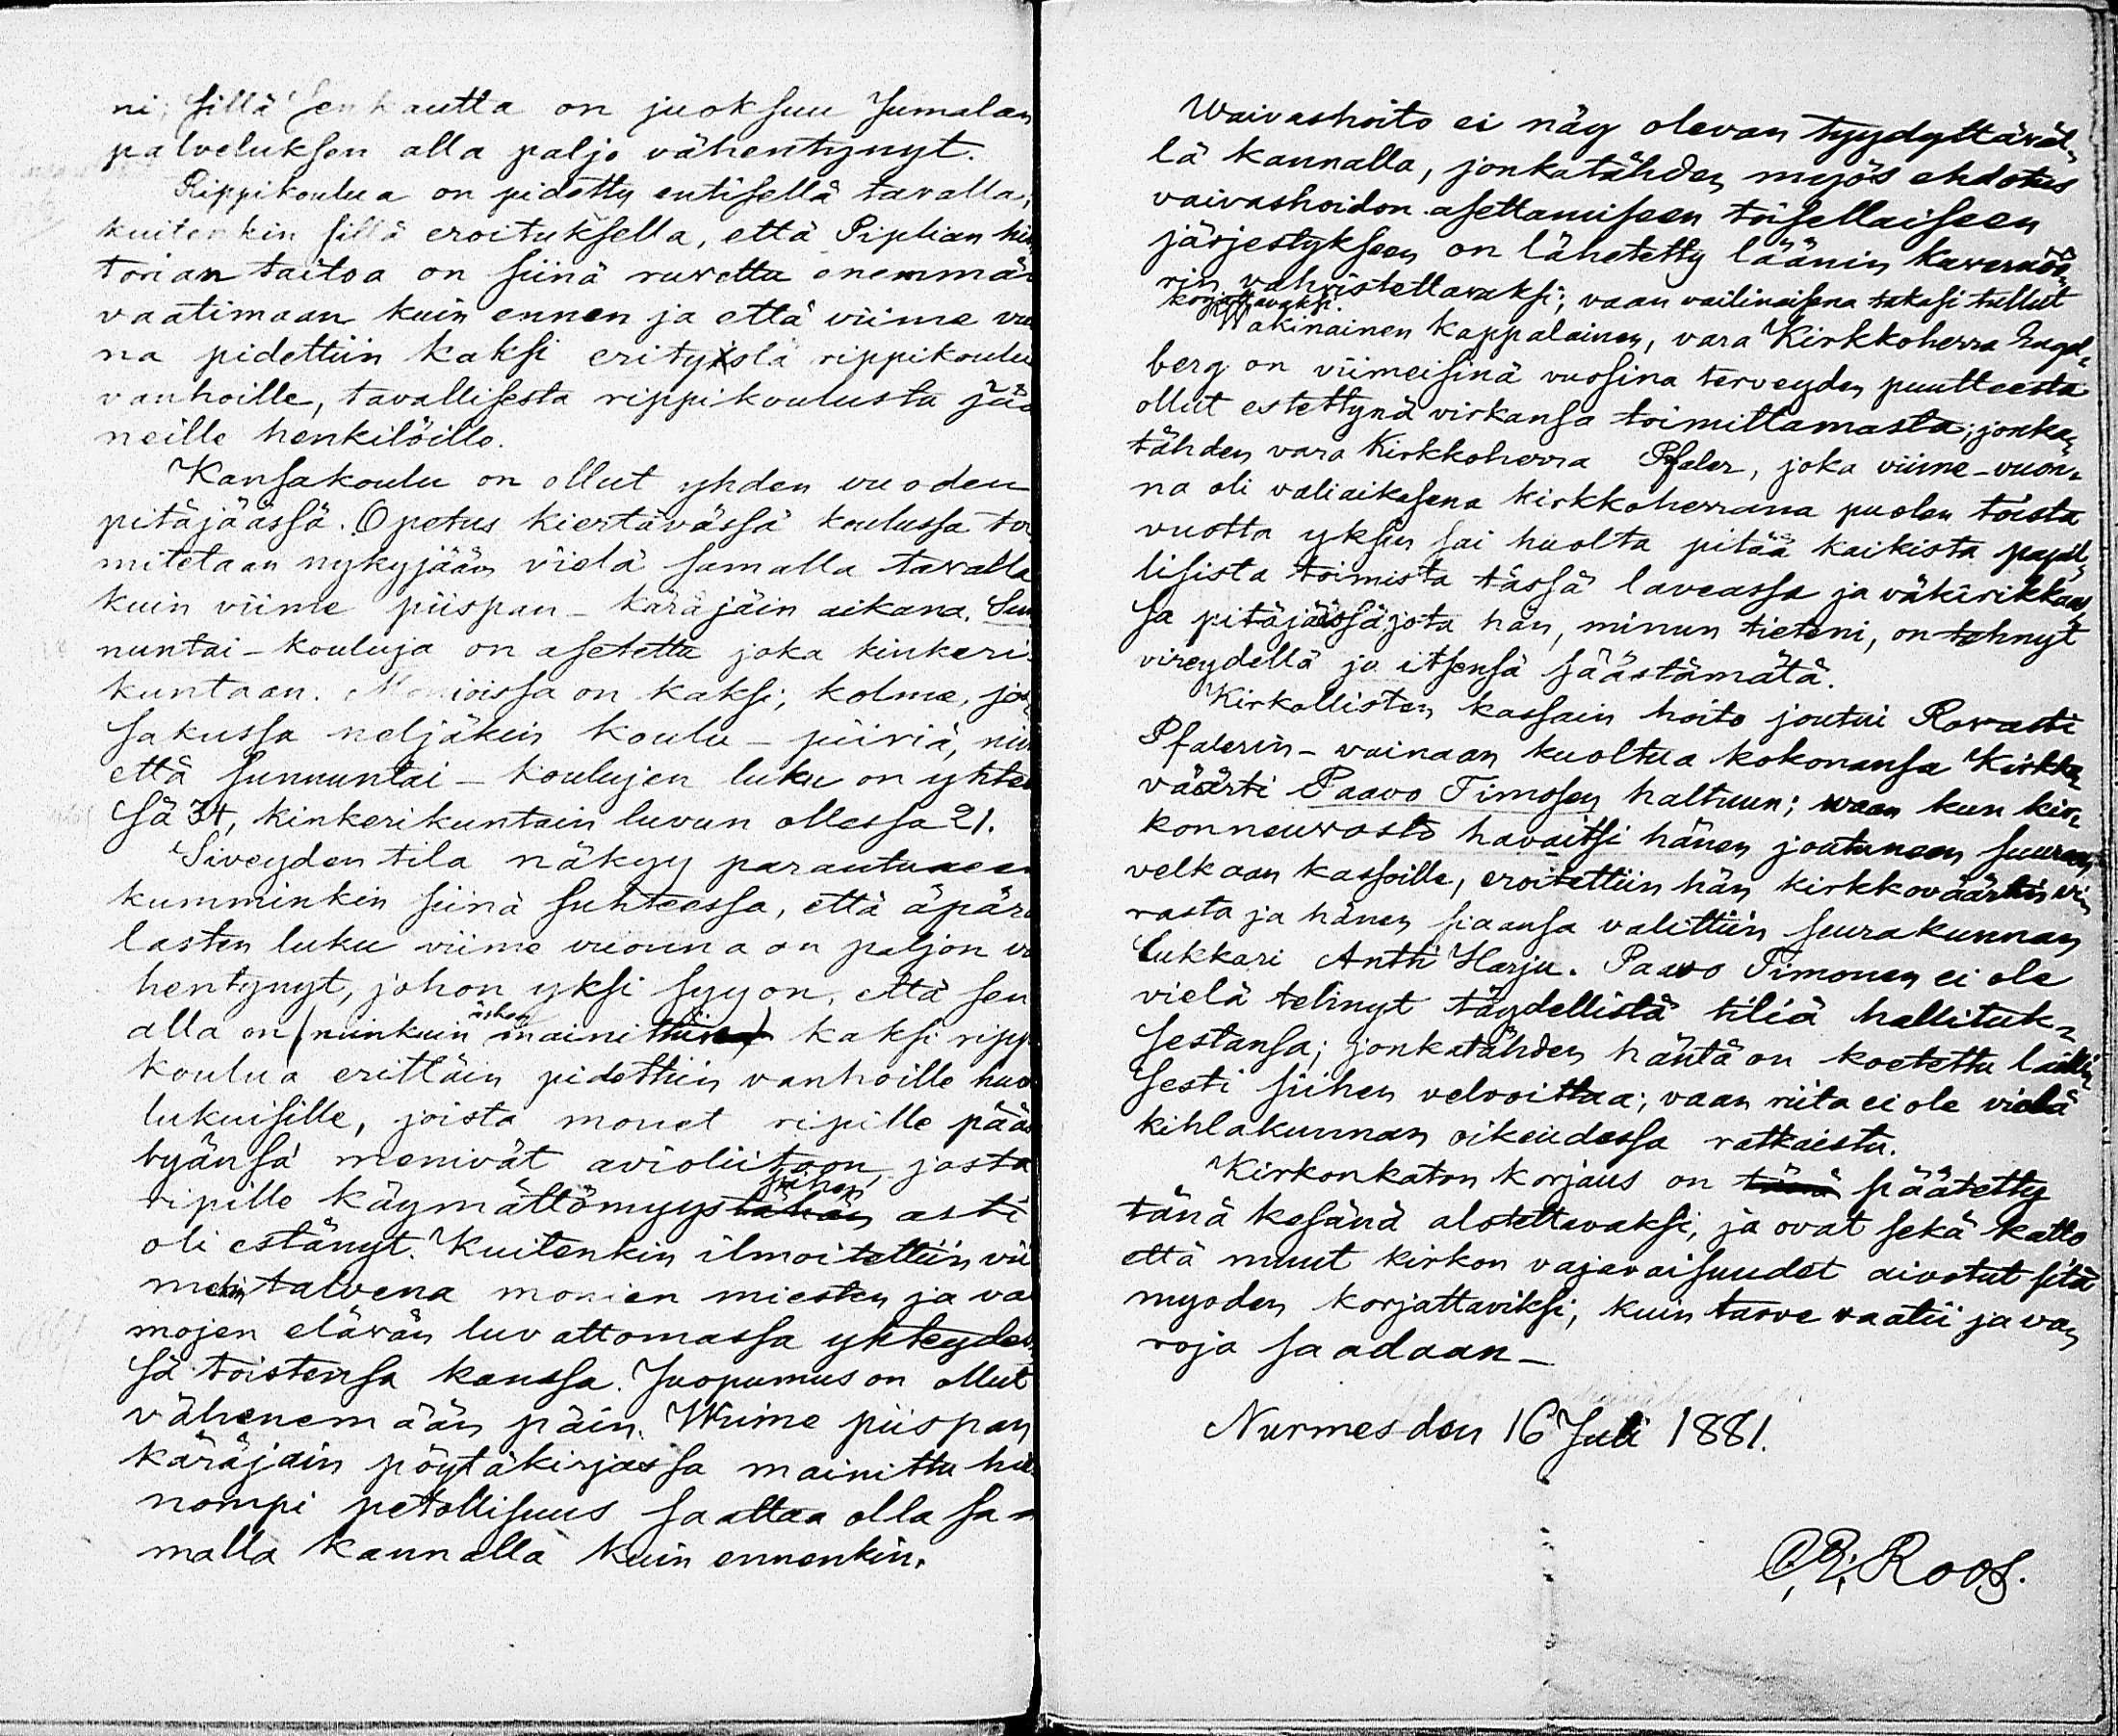 ni; sillä sen kautta on juoksuu Jumalan
palveluksen alla paljo vähentynyt.
Rippikoulua on pidetty entisellä tavalla,
kuitenkin sillä eroituksella, että Piplian his
torian taitoa on siinä ruvettu enemmän
vaatimaan kuin ennen ja että viime vuo
na pidettiin kaksi erityistä rippikoulua
vanhoille, tavallisesta rippikoulusta jää
neille henkilöille.
Kansakoulu on ollut yhden vuoden
pitäjäässä. Opetus kiertävässä koulussa toi
mitetaan nykyjään vielä samalla tavalla
kuin viime piispan-käräjäin aikana. Sun
nuntai-kouluja on asetettu joka kinkeri-
kuntaan. Monioissa on kaksi; kolme, jos
sakussa neljäkin koulu-piiriä, niin
että sunnuntai-koulujen luku on yhteen
sä 34, kinkerikuntain luvun ollessa 21.
Siveyden tila näkyy parantuneen
kumminkin siinä suhteessa, että äpärä
lasten luku viime vuonna on paljon vä
hentynyt, johon yksi syy on, että sen
alla on (niinkuin äsken mainittiin) kaksi rippi
koulua erittäin pidettiin vanhoille huo
lukuisille, joista monet ripille pääs
tyänsä menivät avioliitoon, josta
ripille käymättömyys tähän siihen asti
oli estänyt. Kuitenkin ilmoitettiin vii
mekin talvena monien miesten ja vai
mojen elävän luvattomassa yhteydes
sä toistensa kanssa. Juopumus on ollut
vähenemään päin. Wiime piispan
käräjäin pöytäkirjassa mainittu hie
nompi petollisuus saattaa olla sa-
malla kannalla kuin ennenkin.
Waivashoito ei näy olevan tyydyttäväl-
lä kannalla, jonkatähden myös ehdotus
vaivashoidon asettamiseen toisellaiseen
järjestykseen on lähetetty läänin kuvernöö-
rin vahvistettavaksi; vaan vailinaisena takasi tullut
korjattavaksi.
Wakinainen Kappalainen, vara Kirkkoherra Engel-
berg on viimeisinä vuosina terveyden puutteesta
ollut estettynä virkansa toimittamasta; jonka-
tähden vara Kirkkoherra Pfaler, joka viime-vuon-
na oli valiaikasena kirkkoherrana puolen toista
vuotta yksin sai huolta pitää kaikista papil-
lisista toimista tässä laveassa ja väkirikkaas-
sa pitäjäässä jota hän, minun tieteni, on tehnyt
vireydellä ja itsensä säästämätä.
Kirkollisten kassain hoito joutui Rovasti
Pfalerin-vainaan kuoltua kokonansa Kirkko-
väärti Paavo Timosen haltuun; waan kun kir-
konneuvosto havaitsi hänen joutuneen suureen
velkaan kassoille, eroitettiin hän kirkkoväärtin vi-
rasta ja hänen siaansa valittiin seurakunnan
lukkari Antti Harju. Paavo Timonen ei ole
vielä tehnyt täydellistä tiliä hallituk-
sestansa; jonkatähden häntä on koetettu lailli-
sesti siihen velvoittaa; vaan riita ei ole vielä
kihlakunnan oikeudessa ratkaistu.
Kirkonkaton korjaus on tänä päätetty
tänä kesänä alotettavaksi, ja ovat sekä katto
että muut kirkon vajavaisuudet aivotut sitä
myöden korjattaviksi, kuin tarve vaatii ja va-
roja saadaan-
Nurmes den 16 Juli 1881.
Roos.